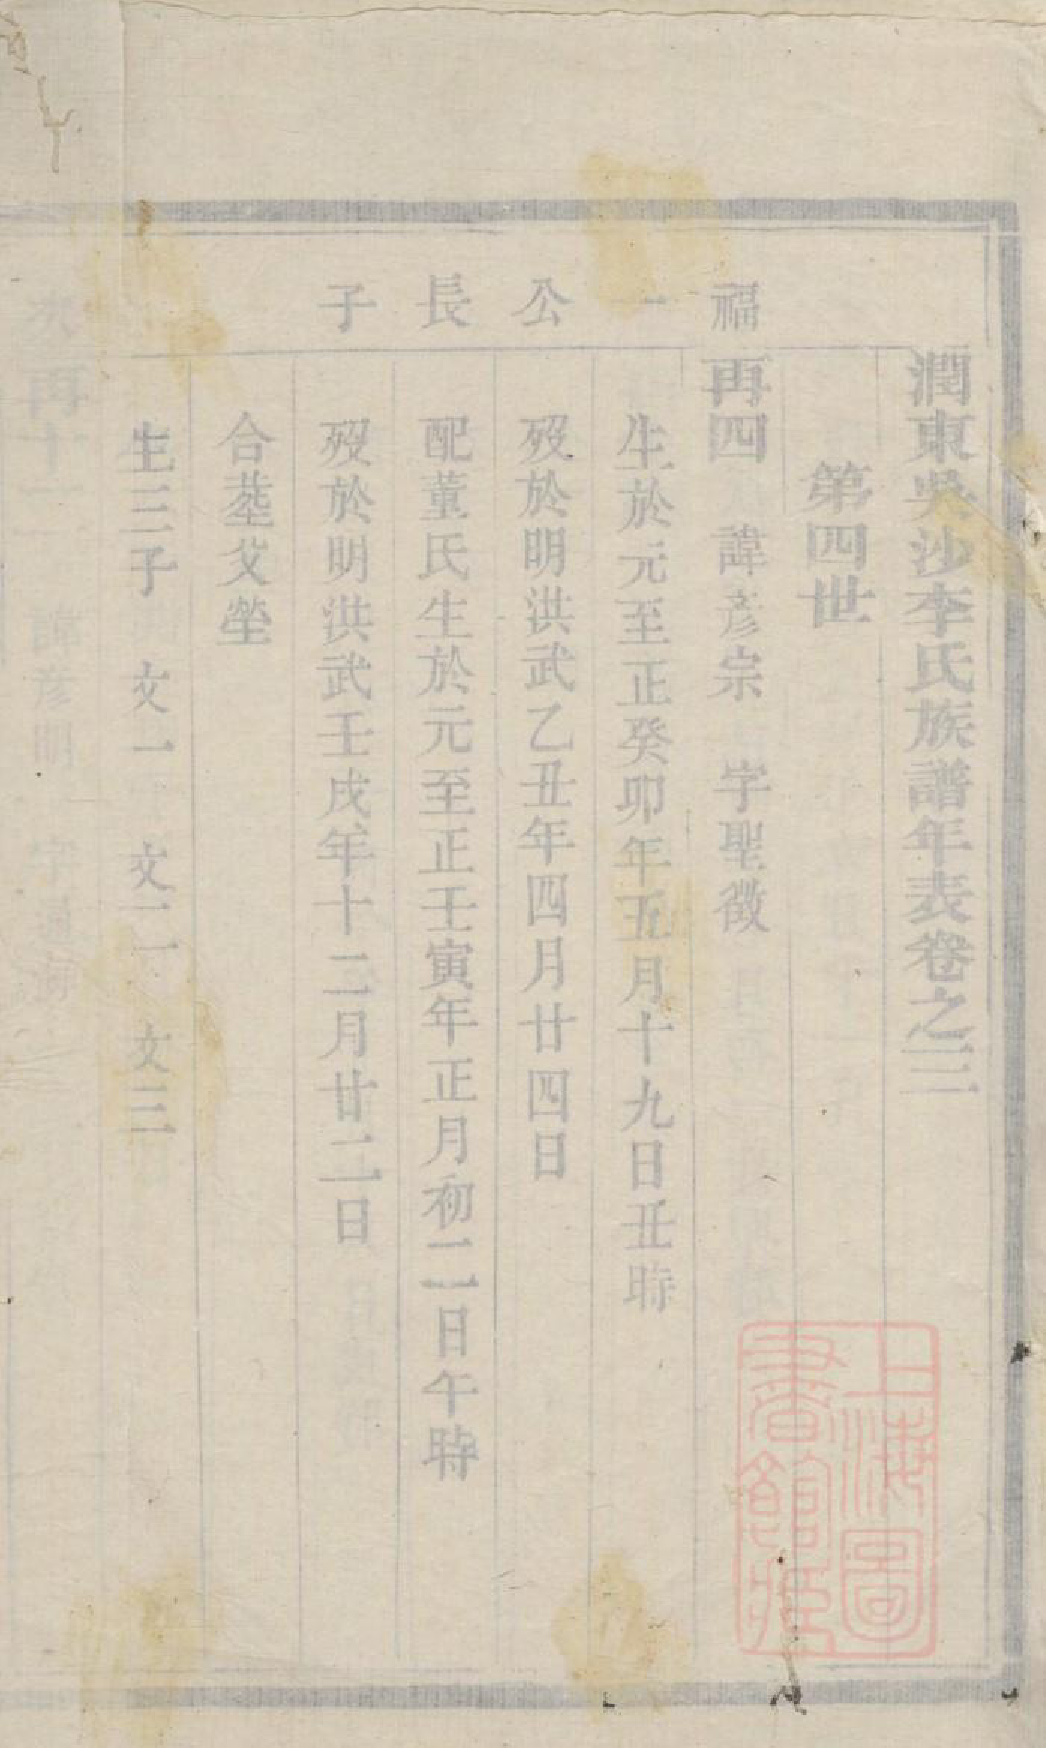 潤東吳沙李氏族譜年表卷之三
第四世
福一公長子
再四 諱彦宗 字聖徵
生於元至正癸卯年五月十九日丑時
歿於明洪武乙丑年四月廿四日
配董氏生於元至正壬寅年正月初二日午時
歿於明洪武壬戌年十二月廿二日
合塟父塋
生三子 文一 文二 文三
次
再十一 諱彦明 字
上海圖書館藏